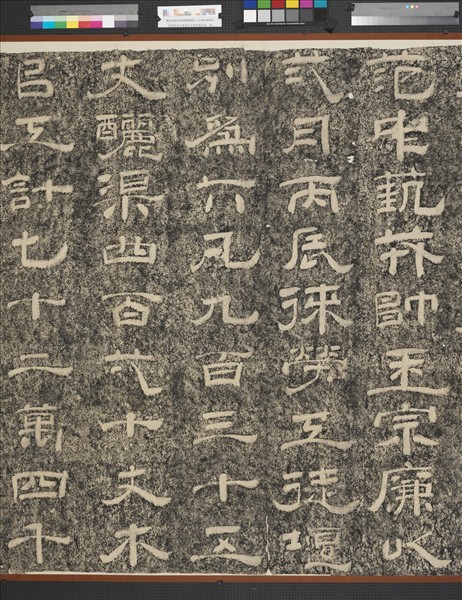 范仲藝戎帥王宗廉以
弍月丙辰徠勞工徒堰
別爲六凡九百三十五
丈釃渠四百弍十丈木
㠯工計七十二萬四千